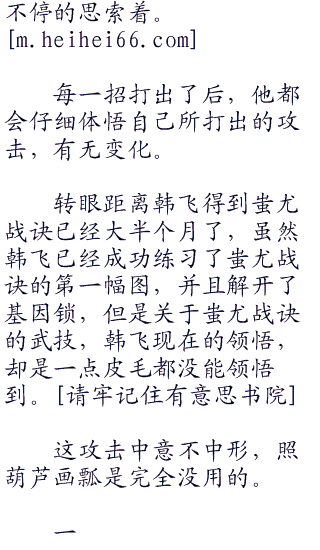 不停的思索着。
[m.heihei66.com]
每一招打出了后，他都
会仔细体悟自己所打出的攻
击，有无变化。
转眼距离韩飞得到蚩尤
战诀已经大半个月了，虽然
韩飞已经成功练习了蚩尤战
诀的第一幅图，并且解开了
基因锁，但是关于蚩尤战诀
的武技，韩飞现在的领悟，
却是一点皮毛都没能领悟
到。[请牢记住有意思书院]
这攻击中意不中形，照
葫芦画瓢是完全没用的。
一